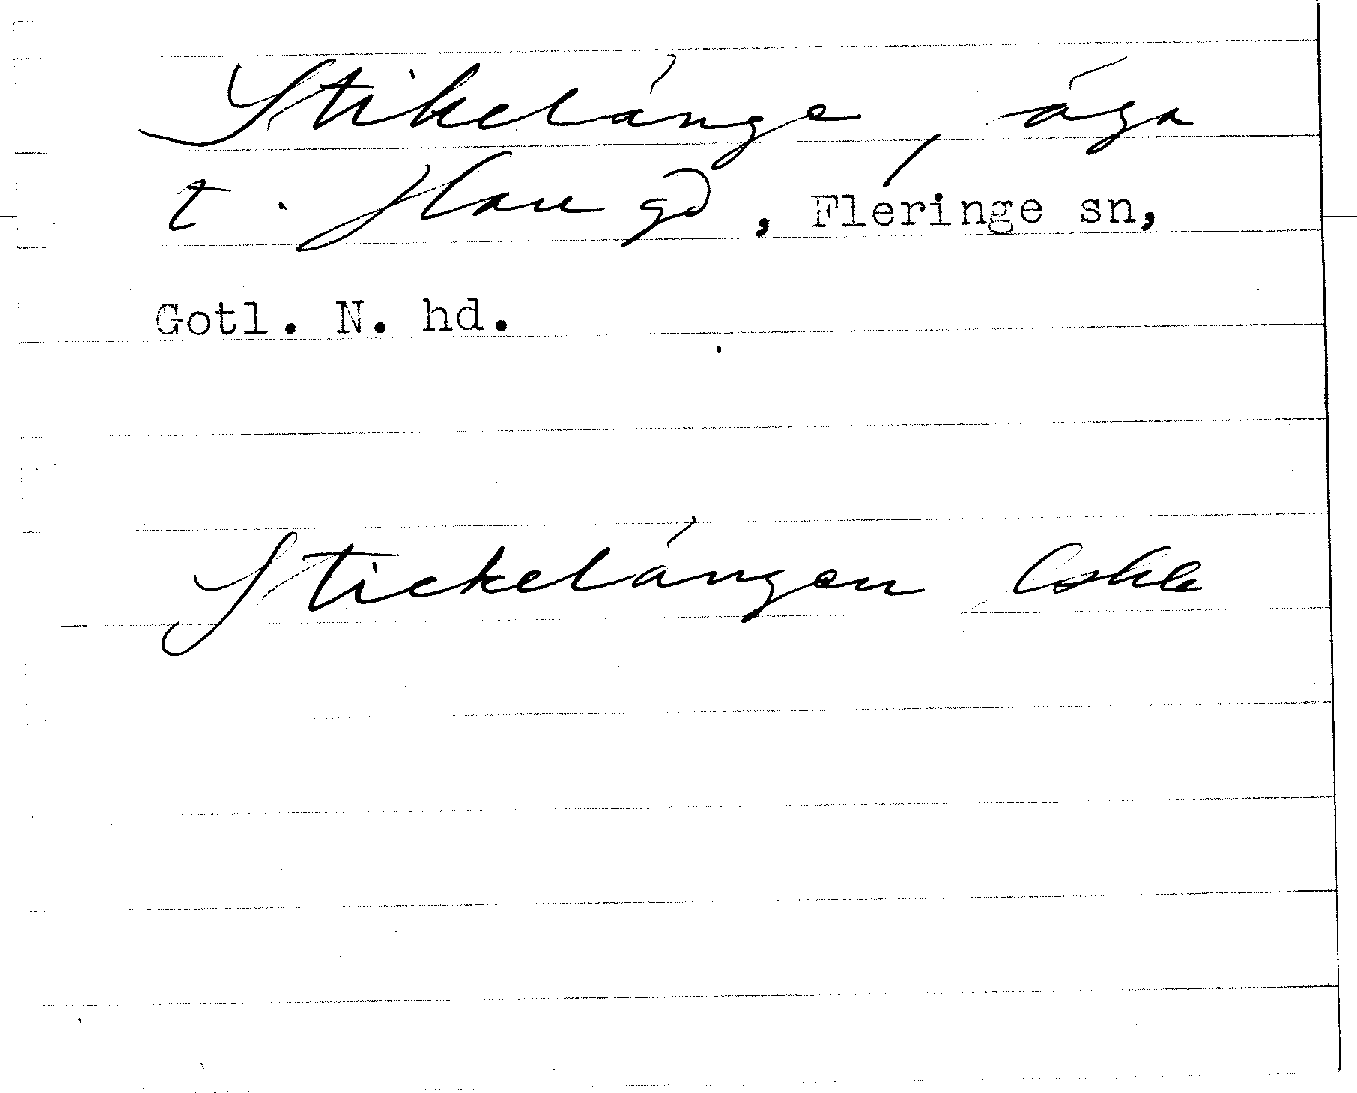 Stikelänge, äga
t. Hau gd, Fleringe sn,
Gotl. N. hd.
Stickelängen